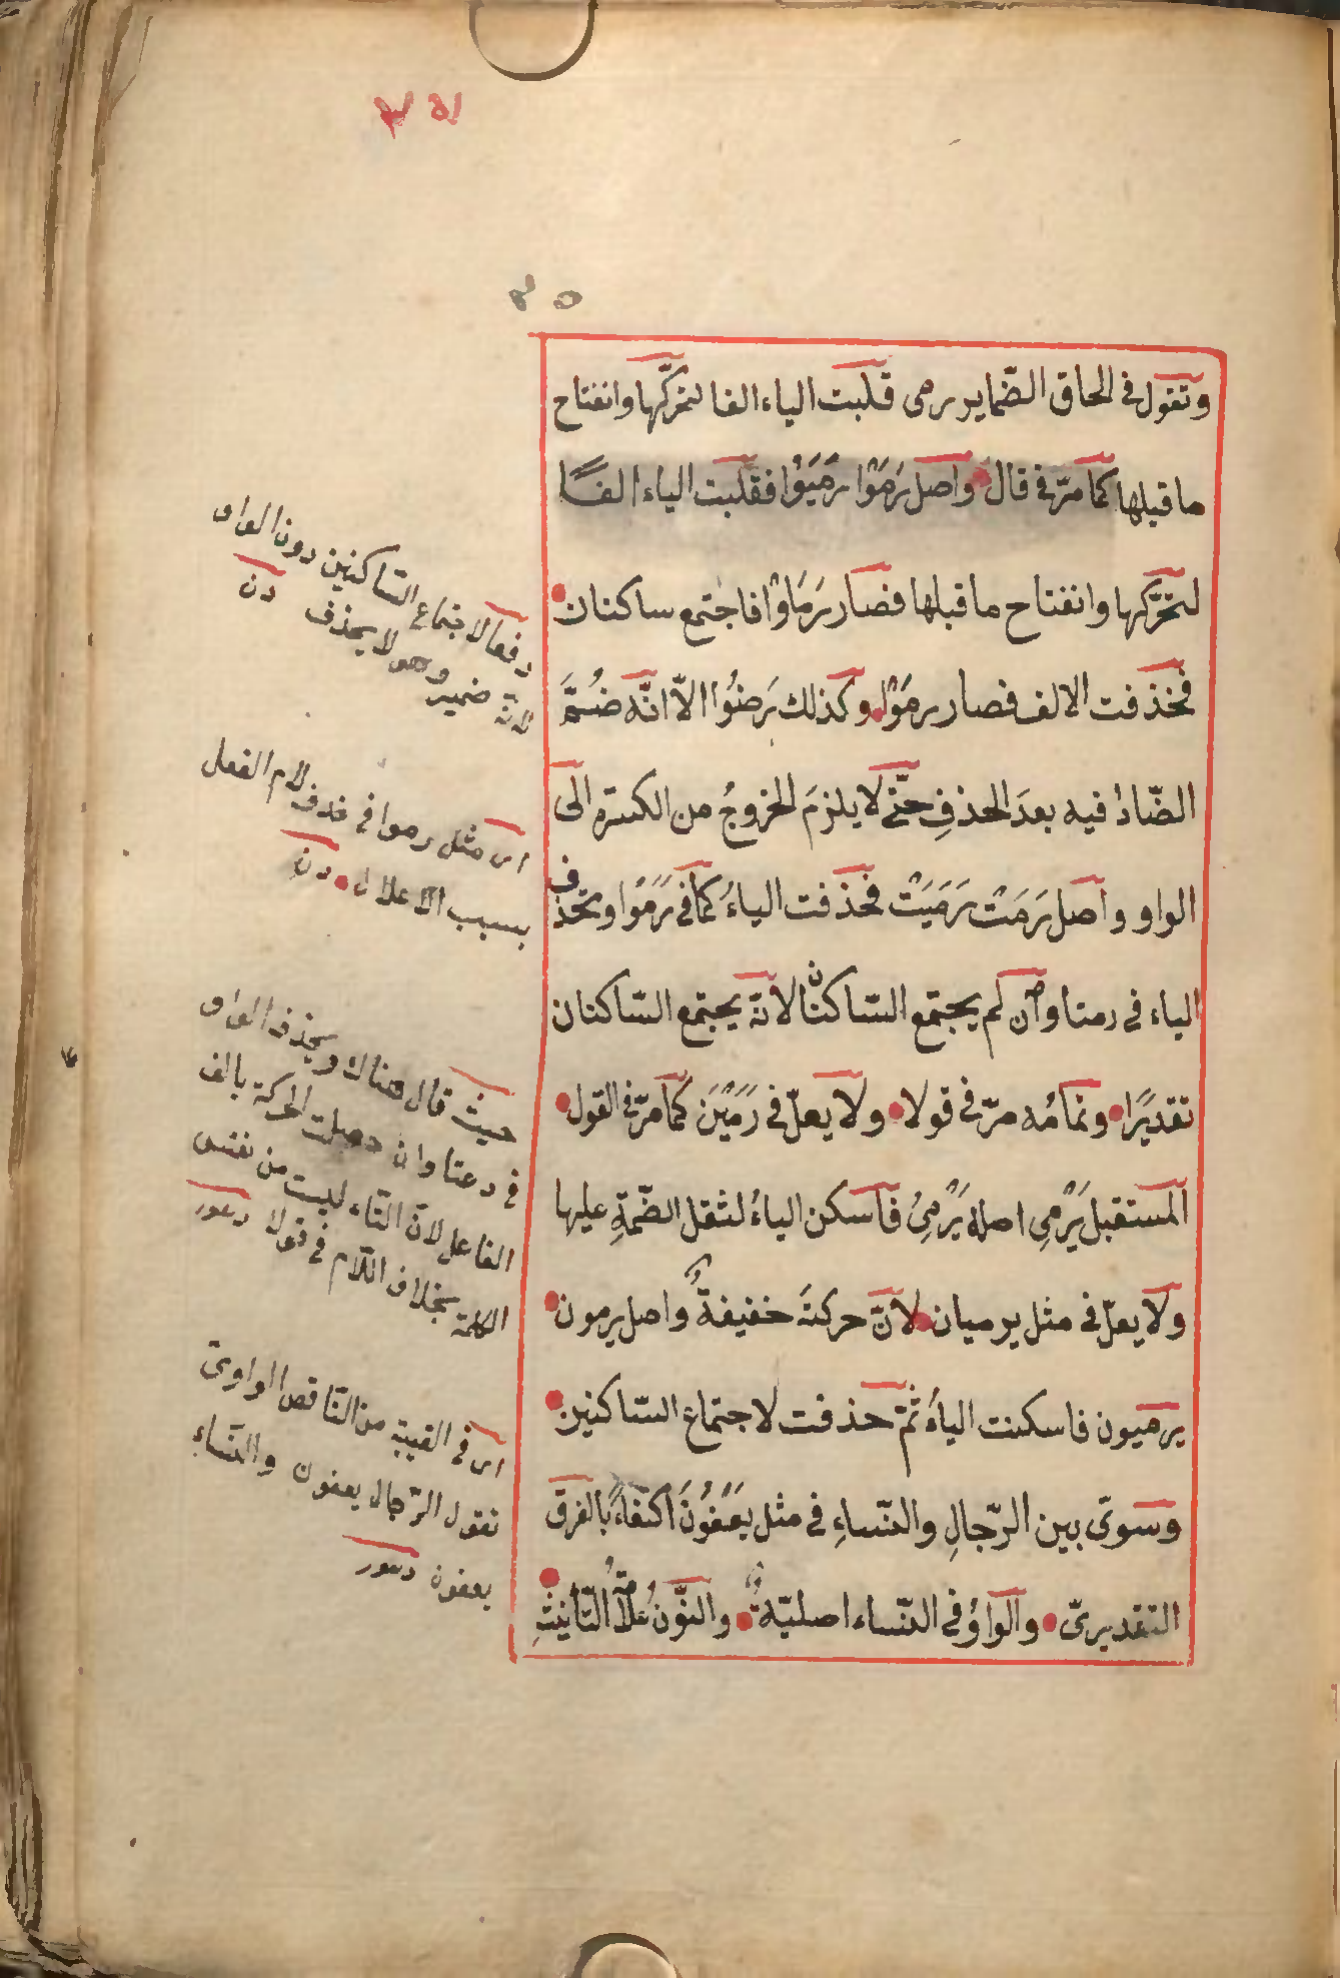 وتقول في الحاق الضماير رمى قلبت الياء الفا لتحركها وانفتاح
ما قبلها كما مرّ في قال واصل رَمَوْا رَمَيُوْا فقلبت الياء الفًا
لتحرّكها وانفتاح ما قبلها فصار رَمَاوْا فاجتمع ساكنان
فخذفت الالف فصار رموْا وكذلك رَضُوا الاّ انّه ضُمَّ
الضّادُ فيه بعدَ الحذفِ حتّى لا يلزمَ الخروجُ من الكسرة الى
الواو واصل رَمَتْ رَمَيَتْ فخذفت الياءُ كما في رَمَوْا وتحذف
الياء في رمتا وان لم يجتمع السّاكنان لانّه يجتمع السّاكنان
تقديرًا وتمامُه مرّ في قولا ولا يعلّ في رَمَيْنَ كما مرّ في القول
المستقبل يَرْمِى اصله يَرْمِىُ فاسكن الياءُ لثقل الضّمةِ عليها
ولا يعلّ في مثل يرميان لانّ حركتَه خفيفةٌ واصل يرمون
يرميون فاسكنت الياءُ ثمّ حذفت لاجتماع السّاكنين
وسوىّ بين الرّجالِ والنّساءِ في مثل يَعْفُوْنَ اكتفاءً بالفرق
التقديرىّ والواوُ في النّساء اصليّةٌ والنّونُ علامة التّأنيثِ
دفعا لاجتماع السّاكنين دون الواو
لانّه ضمير وهو لا يحذف
اى مثل رموا في حذف لام الفعل
بسبب الاعلال
حيث قال هناك ويحذف الواو
في دعتا وان حصلت الحركة بالف
الفاعل لانّ التّاء ليست من نفس
الكلمة بخلاف اللّام في قولا
اى في الغيبة من النّاقص الواوىّ
تقول الرّجال يعفون والنّساء
يعفون